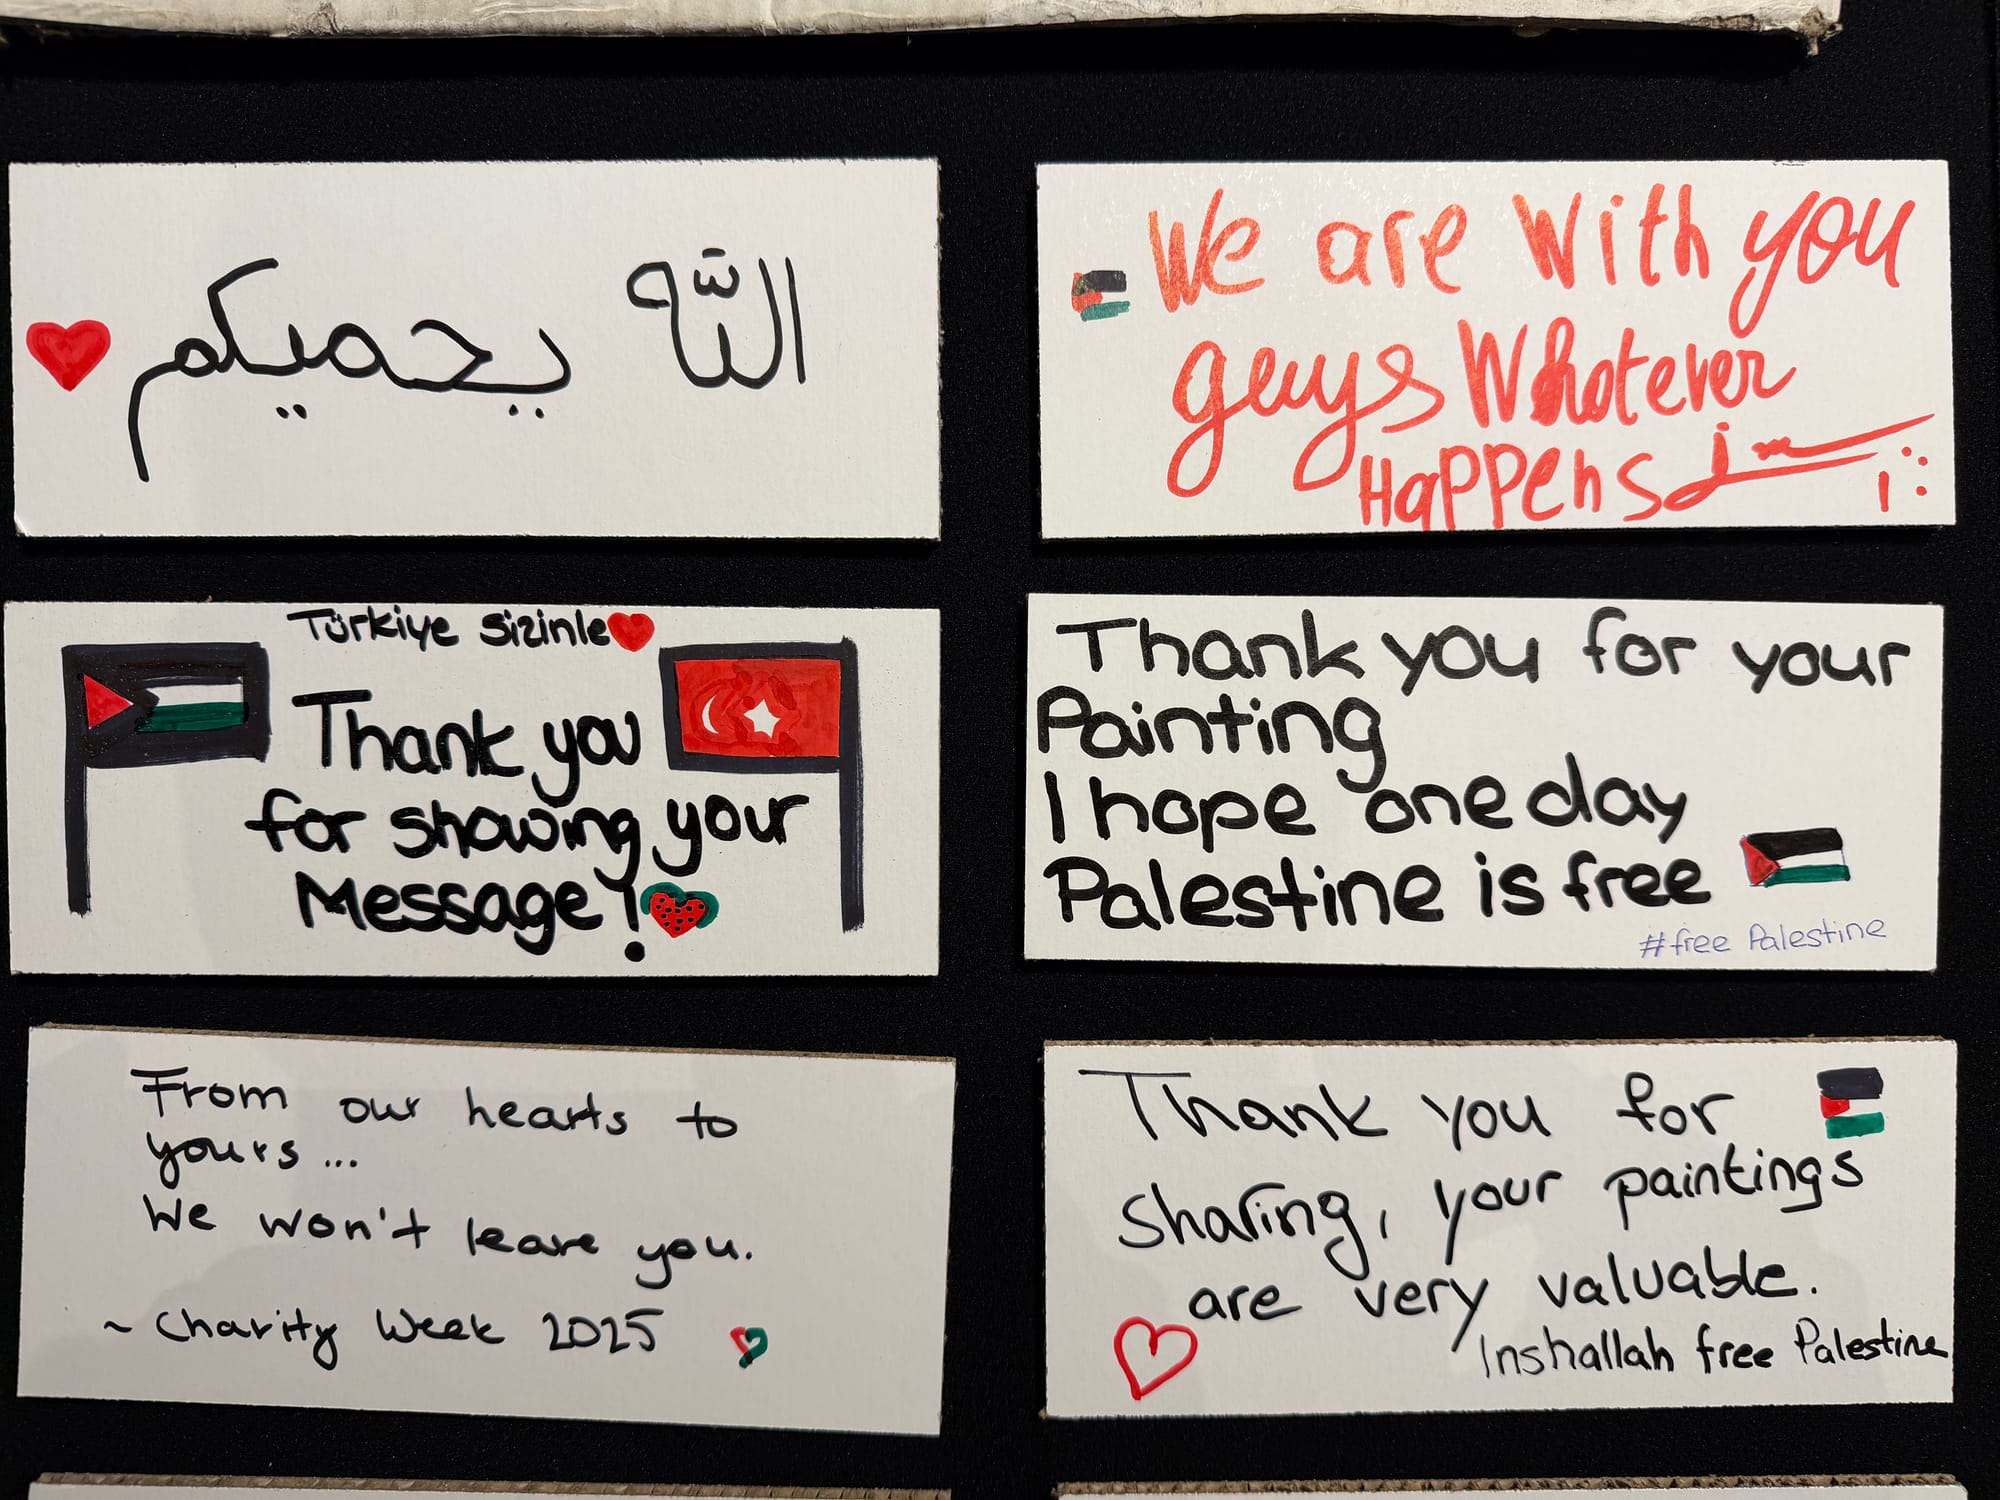 الله يحميكم
We are with you
guys Whatever
Happens
Türkiye Sizinle
Thank you
for showing your
Message!
Thank you for your
Painting
I hope one day
Palestine is free
#free Palestine
From our hearts to
yours...
We won't leave you.
~ Charity Week 2025
Thank you for
sharing, your paintings
are very valuable.
Inshallah free Palestine